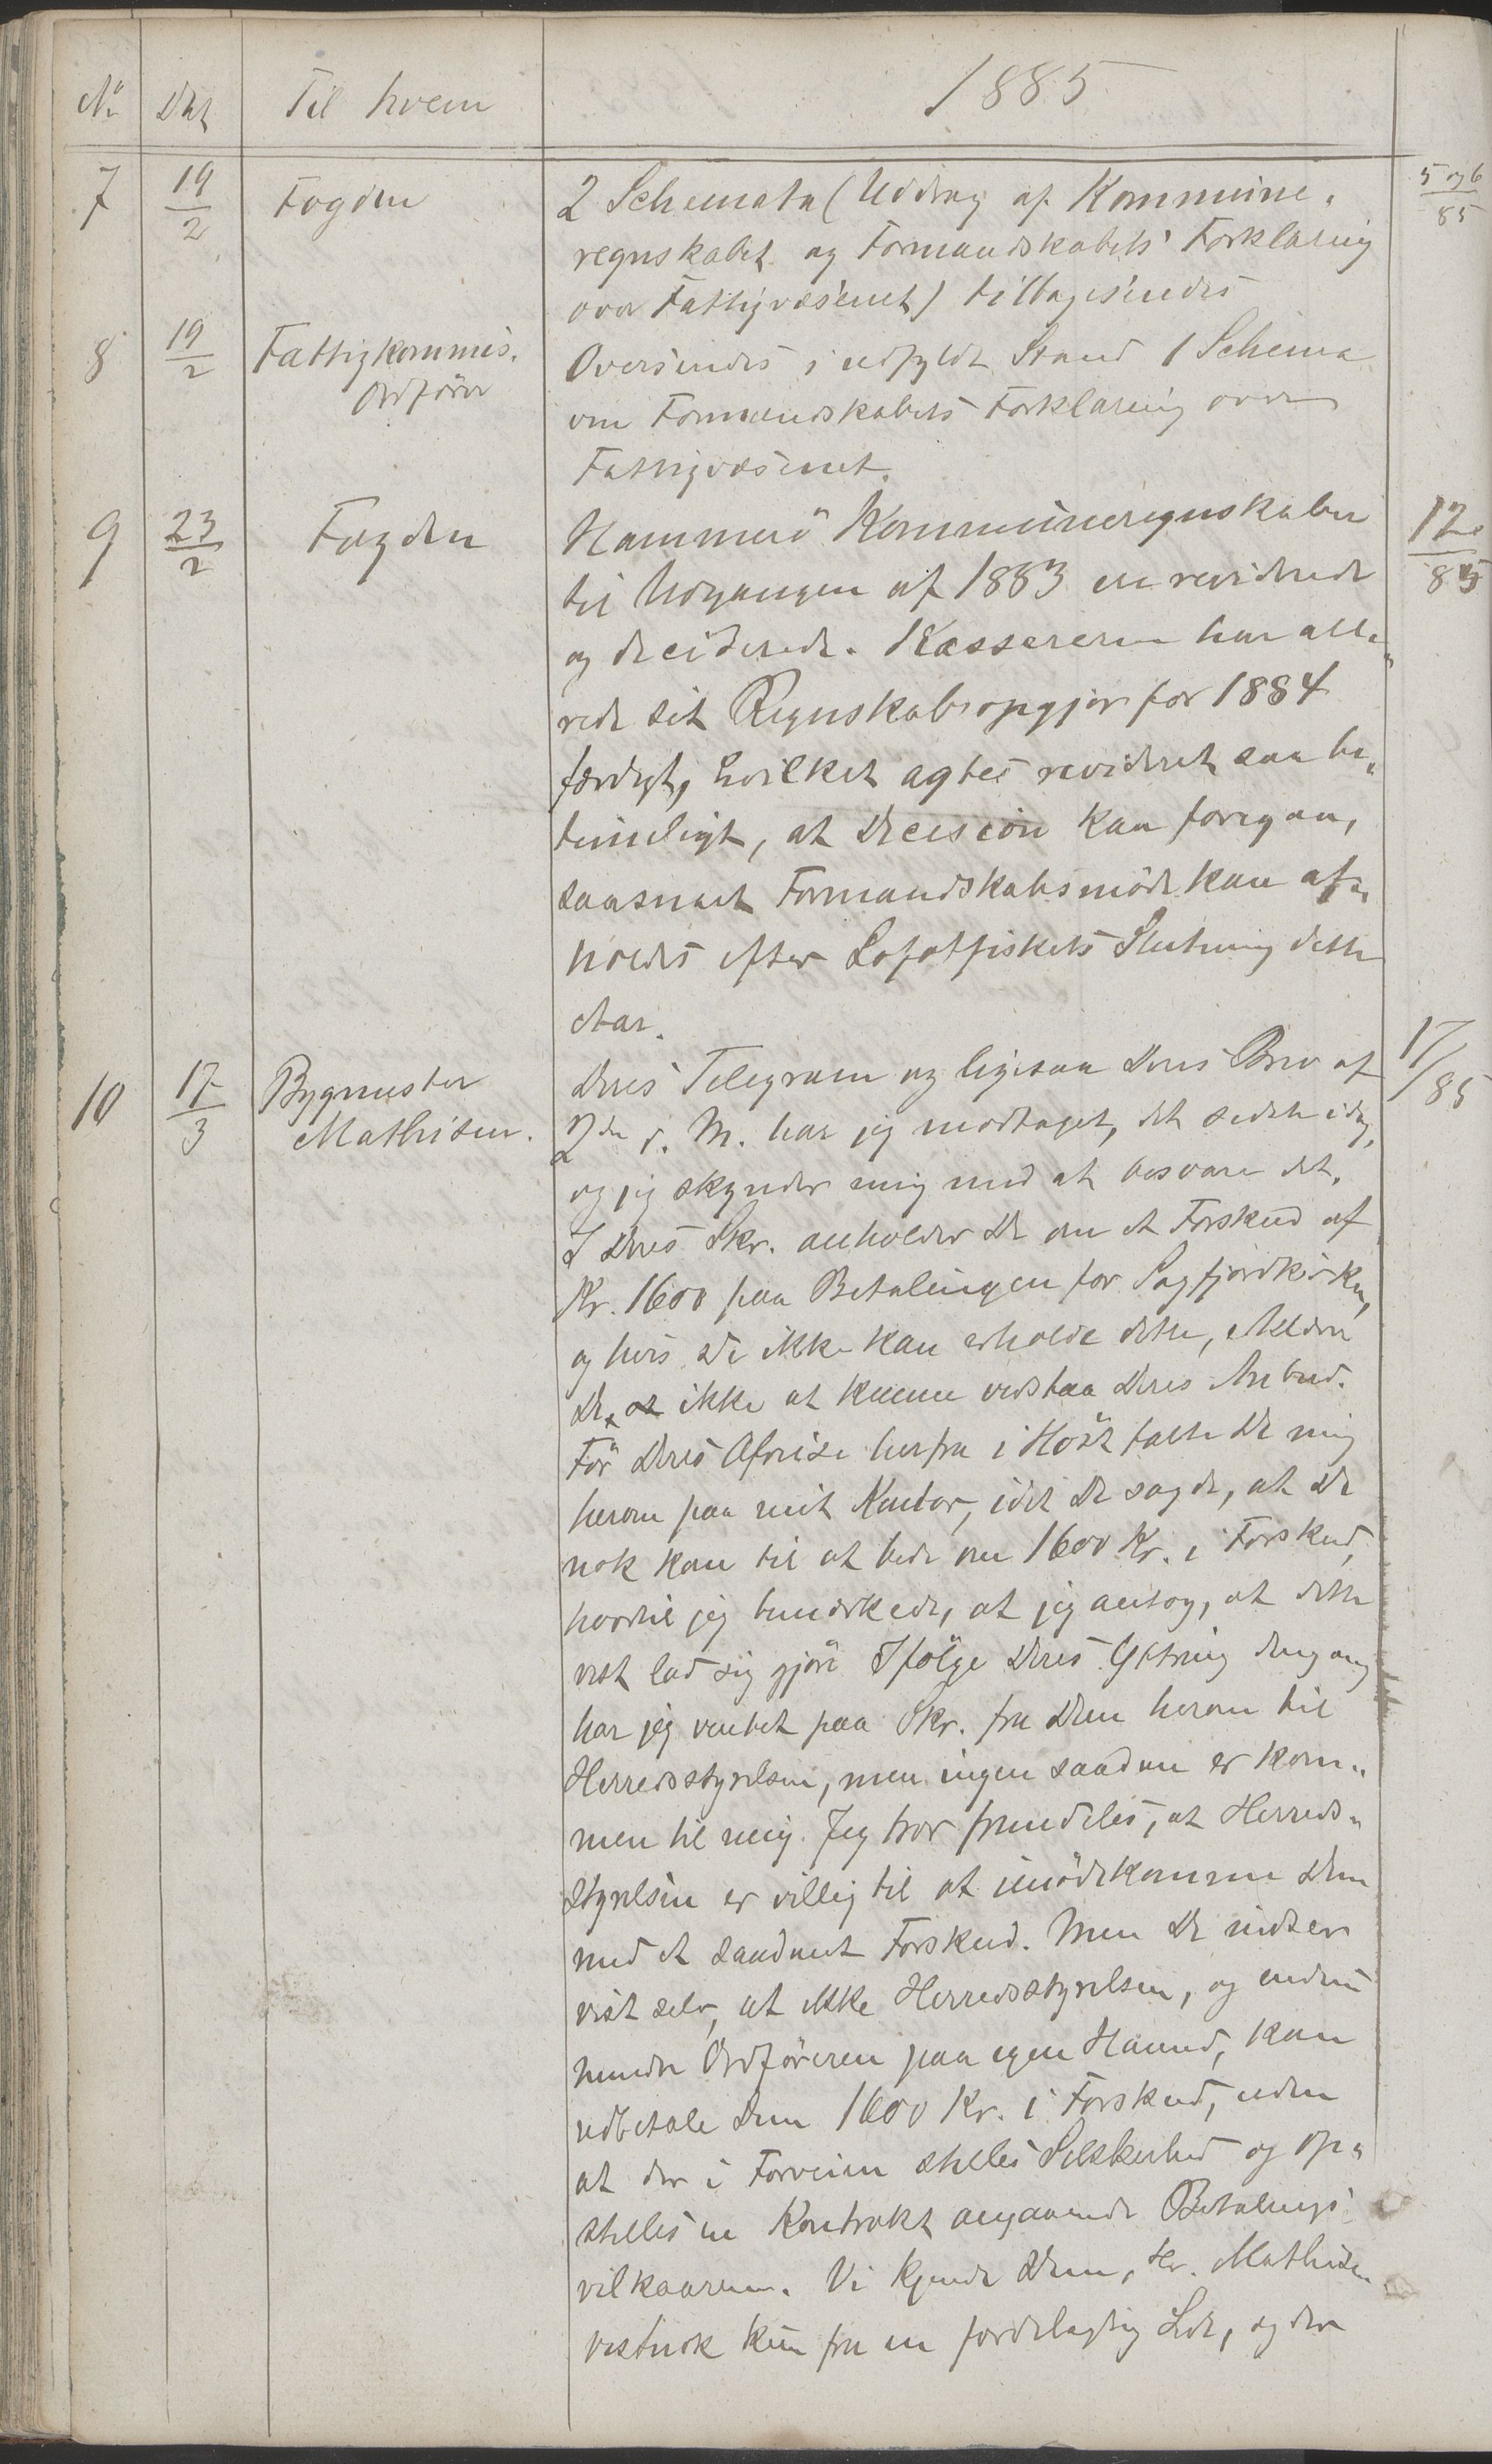 No Dat Til hvem 1885
7 19/2 Fogden 2 Schemata (Uddrag af Kommune- 5 og 6/85
regnskabet og Formandskabets Forklaring
over Fattigvæsenet) tilbagesendes
8 19/2 Fattigkommis. Oversendes i udfyldt Stand 1 Schema
Ordförer om Formandskabets Forklaring over
Fattigvæsenet.
9 23/2 Fogden Hammerö Kommuneregnskaber 12/85
til Udgangen af 1883 ere reviderede
og deciderede. Kassereren har alle-
rede sit Regnskabsopgjör for 1884
færdigt, hvilket agtes revideret saa be-
timeligt, at Decision kan foregaa,
saasnart Formandskabsmöde kan af-
holdes efter Lofotfiskets Slutning dette
Aar.
10 17/3 Bygmester Deres Telegram og ligesaa Deres Brev af 17/85
Mathisen. 2den d. M. har jeg modtaget, det sidste idag,
og jeg skynder mig med at besvare det.
I Deres Skr. anholder De om et Forskud af
Kr. 1600 paa Betalingen for Sagfjordkirken,
og hvis De ikke kan erholde dette, melder
De, ikke at kunne vedstaa Deres Anbud.
För Deres Afreise herfra i Höst talte De mig
herom paa mit Kontor, idet De sagde, at De
nok kom til at bede om 1600 Kr. i Forskud,
hvortil jeg bemærkede, at jeg antog, at dette
vist lod sig gjöre. Ifölge Deres Ytring dengang
har jeg ventet paa Skr. fra Dem herom til
Herredsstyrelsen, men ingen saadan er kom-
men til mig. Jeg tror fremdeles, at Herreds-
styrelsen er villig til at imödekomme Dem
med et saadant Forskud. Men De indser
vist selv, at ikke Herredsstyrelsen, og endnu
mindre Ordföreren paa egen Haand, kan
udbetale Dem 1600 Kr. i Forskud, uden
at der i Forveien stilles Sikkerhed og op-
stilles en Kontrakt angaaende Betalings-
vilkaarene. Vi kjende Dem, Hr. Mathisen
vistnok kun fra en fordelagtig Side, og der